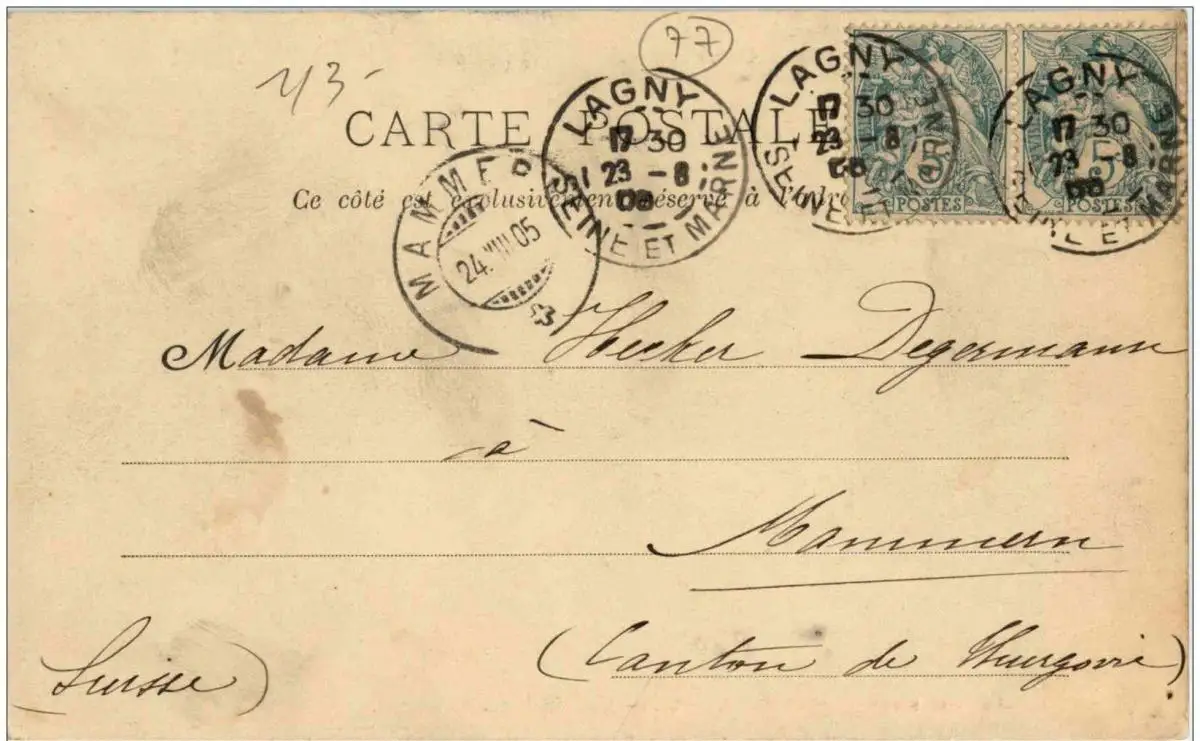 77
43-
CARTE POSTALE
Ce côté est exclusivement réservé à l'adre
LAGNY
17 30
23 - 8
SEINE ET MARNE
LAGNY
17 30
23 8
SEINE ET MARNE
LAGNY
17 30
23 - 8
SEINE ET MARNE
5
POSTES
5
POSTES
MAMMER
24.VIII.05
Madame Hecker Degermann
à
Mammern
(Canton de Thurgovie)
(Suisse)